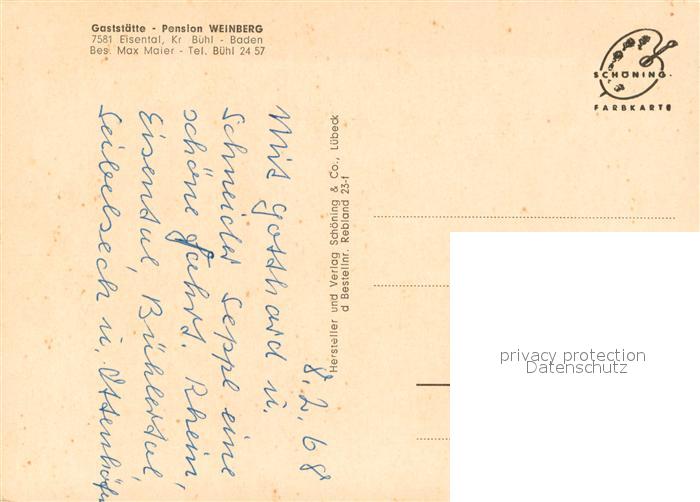 Gaststätte - Pension WEINBERG
7581 Eisental, Kr Bühl - Baden
Bes. Max Maier - Tel. Bühl 24 57
SCHÖNING
FARBKARTE
Hersteller und Verlag Schöning & Co., Lübeck
d Bestellnr. Rebland 23-f
8.2.68
Mit Gotthard u.
Schneider Seppl eine
schöne Fahrt. Rhein,
Eisental, Bühlertal,
Seibelseck u. Ottenhöfen
privacy protection
Datenschutz